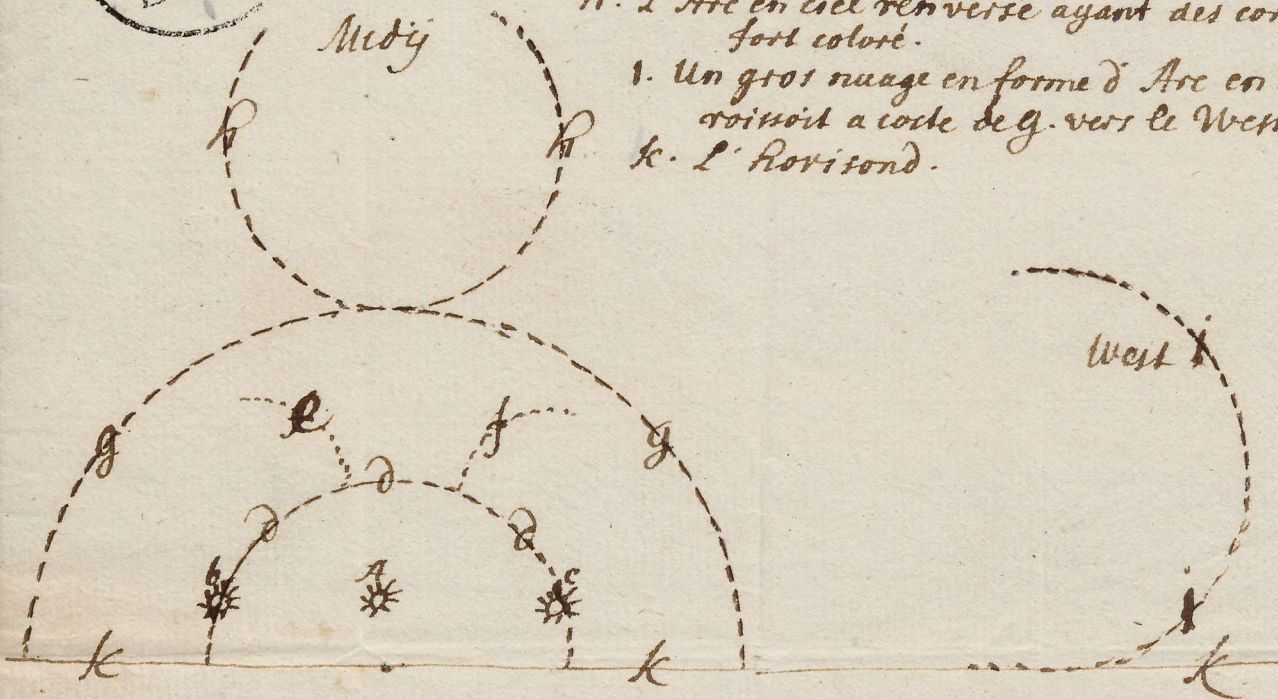 h. L'Arc en ciel renverse ayant des cor
fort coloré.
1. Un gros nuage en forme d'Arc en
roissoit a coste de g. vers le West
k. L'horisond.
Midij
h h
West i
e f
g g
d
d d
b A c
i
k k k